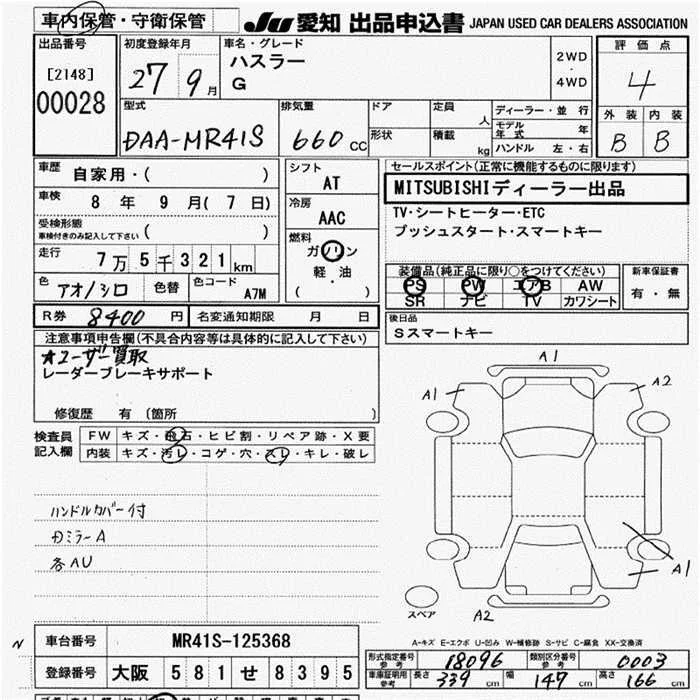 車内保管・守衛保管
JU 愛知 出品申込書 JAPAN USED CAR DEALERS ASSOCIATION
出品番号
[2148]
00028
初度登録年月
27 9月
車名・グレード
ハスラー
G
2WD
・
4WD
評価点
4
外装 内装
B B
型式
DAA-MR41S
排気量
660 CC
ドア
形状
定員 人
積載 kg
ディーラー・並行
モデル年式 年
ハンドル 左・右
車歴 自家用・( )
車検 8年 9月(7日)
受検形態
車検付きのみ記入して下さい ( )
走行 7万5千321km
色 アオ/シロ 色替 色コード A7M
シフト
AT
冷房
AAC
燃料
ガソリン
軽・油
( )
セールスポイント(正常に機能するものに限ります)
MITSUBISHIディーラー出品
TV・シートヒーター・ETC
プッシュスタート・スマートキー
装備品(純正品に限り○をつけてください)
PS PW エアB AW
SR ナビ TV カワシート
新車保証書
有・無
R券 8400円 名変通知期限 月 日
後日品
Sスマートキー
注意事項申告欄(不具合内容等は具体的に記入して下さい)
★ユーザー買取
レーダーブレーキサポート
修復歴 有 (箇所 )
検査員記入欄
FW キズ・飛石・ヒビ割・リペア跡・X要
内装 キズ・汚レ・コゲ・穴・スレ・キレ・破レ
ハンドルカバー付
各AU
A1
A1
A2
A1
A2
スペア
A-キズ E-エクボ U-凹み W-補修跡 S-サビ C-腐食 XX-交換済
N
車台番号 MR41S-125368
登録番号 大阪 581 せ 8395
形式指定番号 参考 18096
類別区分番号 参考 0003
車庫証明用 参考 長さ 339cm 幅 147cm 高さ 166cm